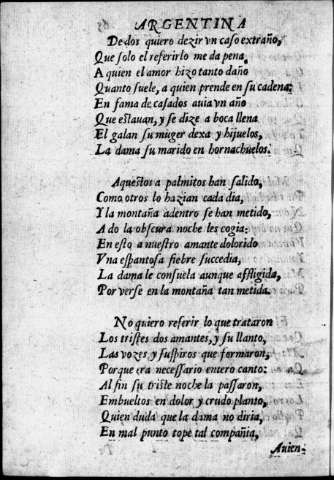 ARGENTINA
De dos quiero dezir vn caso extraño,
Que solo el referirlo me da pena,
A quien el amor hizo tanto daño
Quanto suele, a quien prende en su cadena:
En fama de casados auia vn año
Que estauan, y se dize a boca llena
El galan su muger dexa y hijuelos,
La dama su marido en hornachuelos.
Aquestos a palmitos han salido,
Como otros lo hazian cada dia,
Y la montaña adentro se han metido,
A do la obscura noche les cogia:
En esto a nuestro amante dolorido
Vna espantosa fiebre succedia,
La dama le consuela aunque affligida,
Por verse en la montaña tan metida.
No quiero referir lo que trataron
Los tristes dos amantes, y su llanto,
Las vozes y suspiros que formaron,
Porque era necessario entero canto:
Al fin su triste noche la passaron,
Embueltos en dolor y crudo planto,
Quien duda que la dama no diria,
En mal punto tope tal compañia,
Auien-